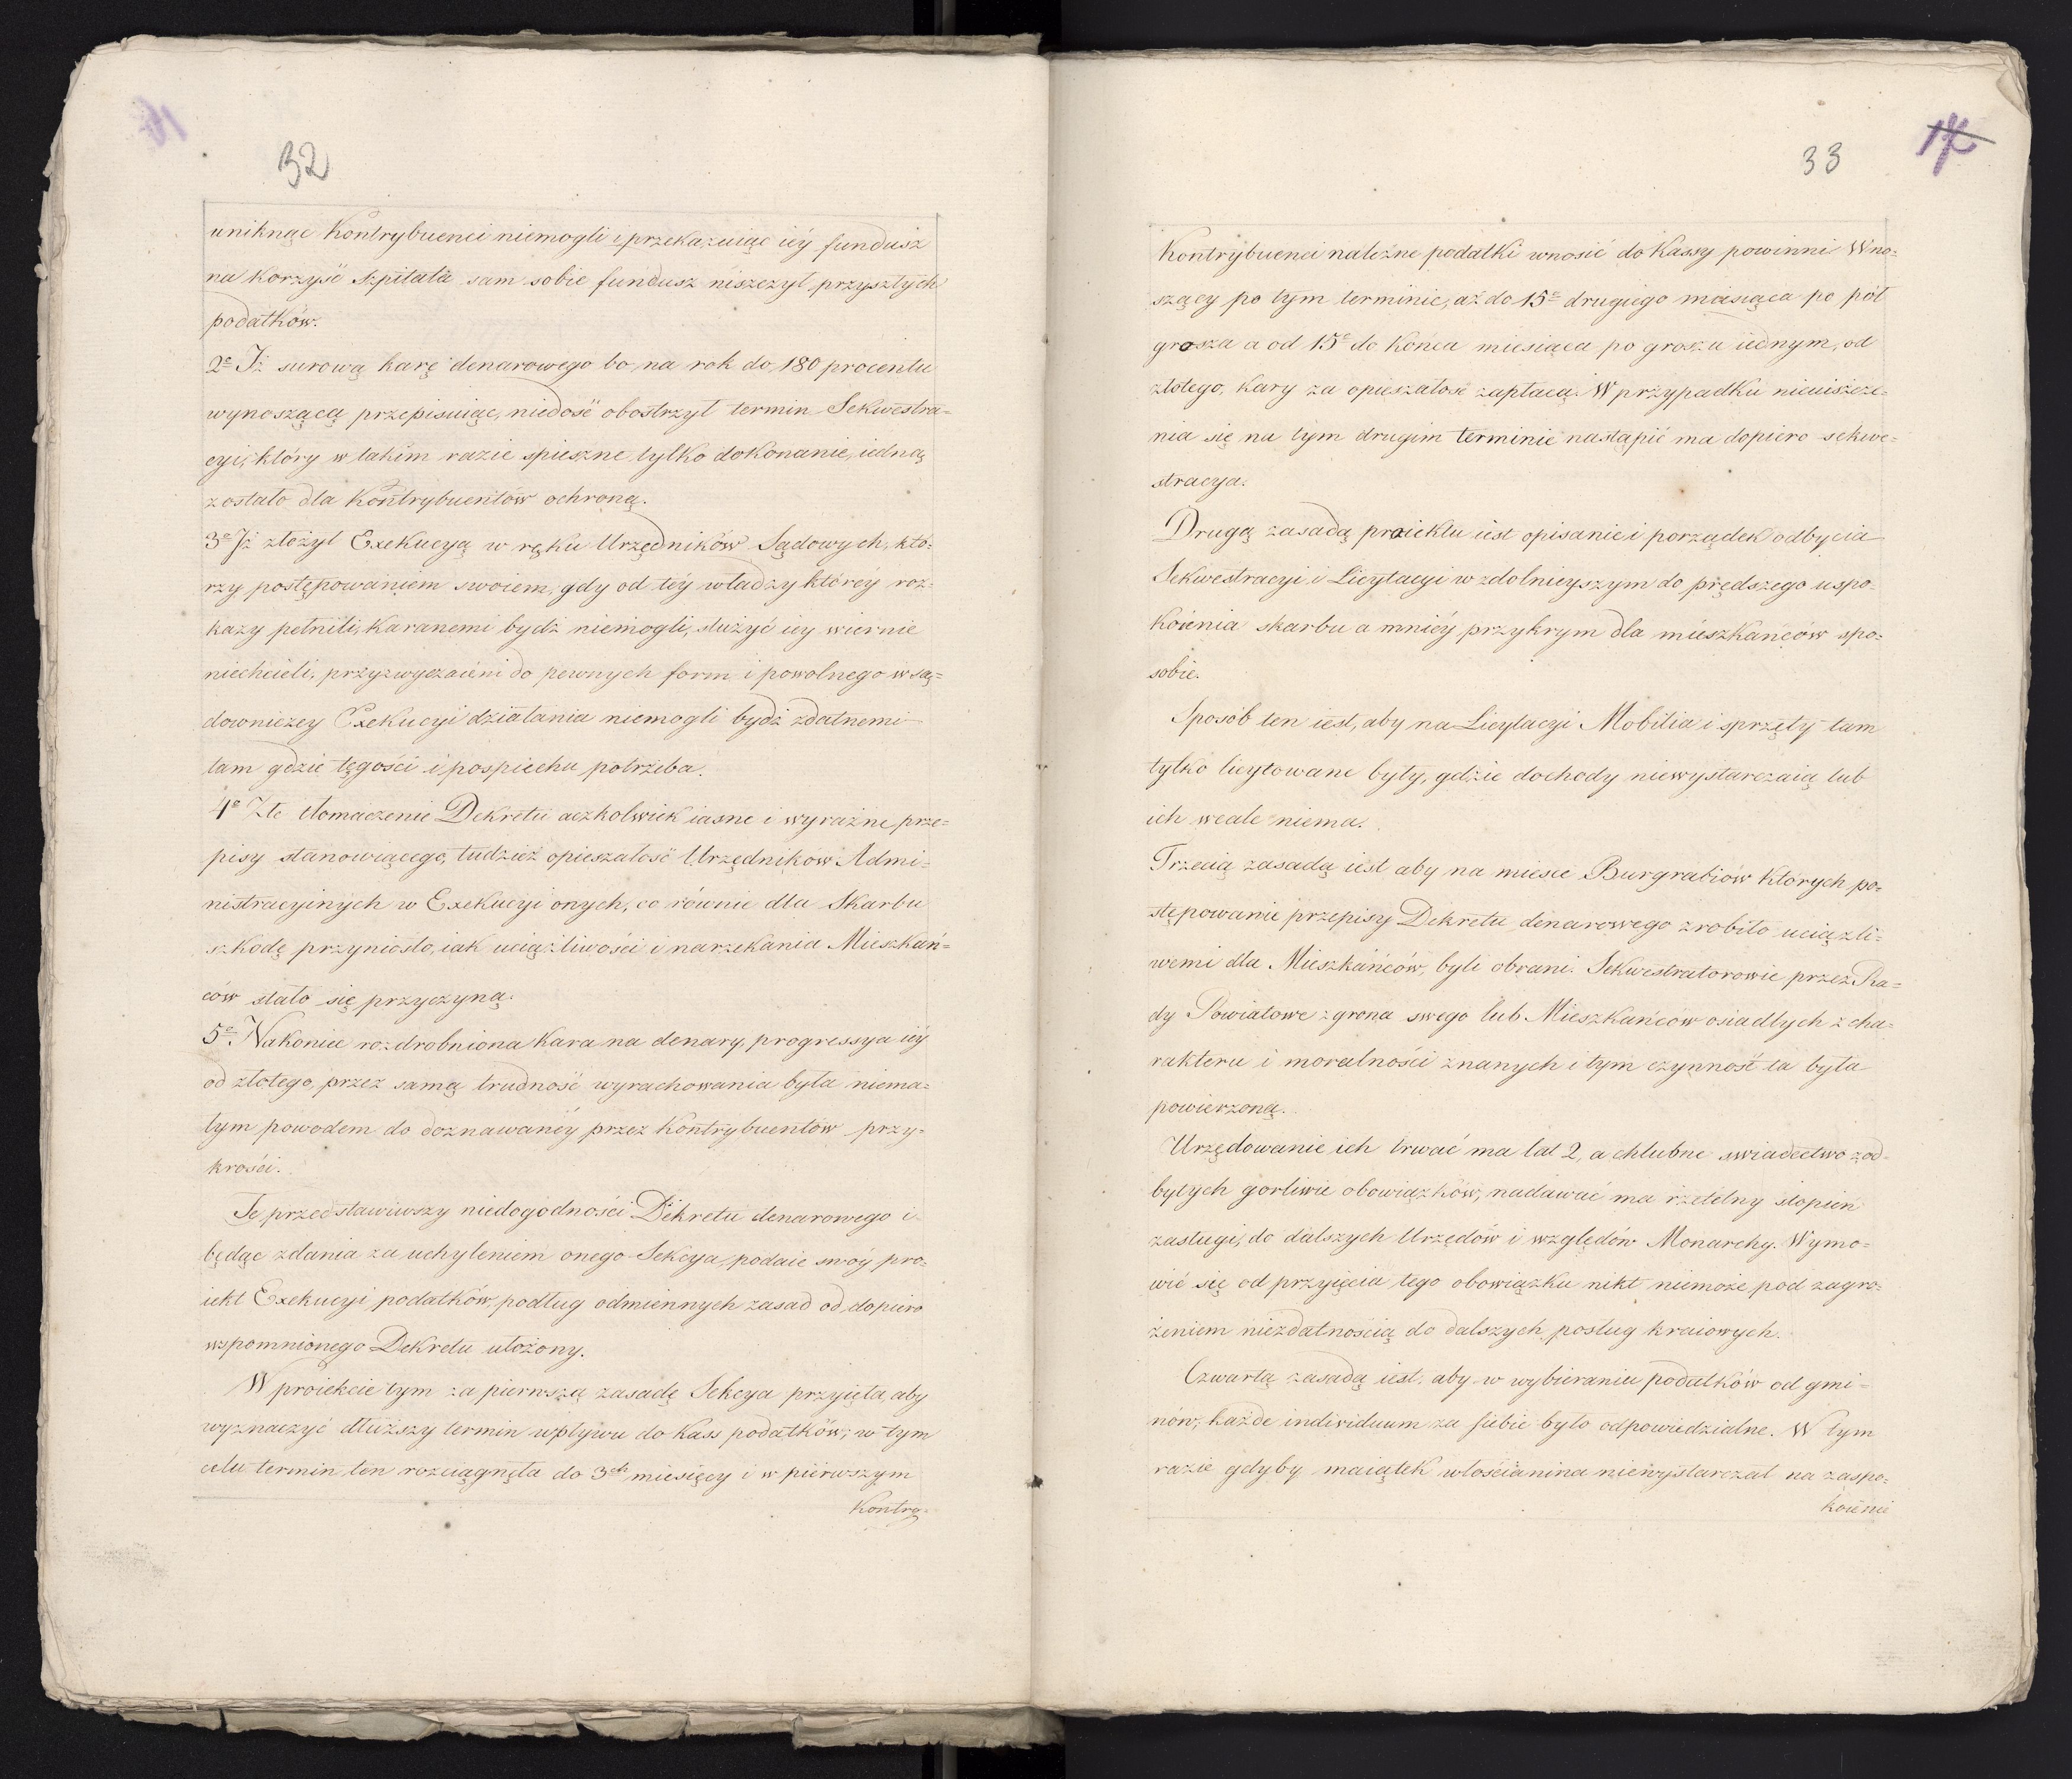 32
uniknąc Kontrybuenci niemogli i przekazuiąc iéy fundusz
na korzyść szpitala sam sobie fundusz niszczył przyszłych
podatków.
2e Iż surową karę denarowego bo na rok do 180 procentu
wynoszącą przepisuiąc, niedość obostrzył termin Sekwestra=
cyi, który w takim razie spieszne tylko dokonanie, iedną
zostało dla Kontrybuentów ochroną.
3e Iż złożył Exekucyą w ręku Urzędników Sądowych, któ=
rzy postępowaniem swoiem, gdy od téy władzy któréy roz=
kazy pełnili, karanemi bydź niemogli, służyć iey wiernie
niechcieli, przyzwyczaieni do pewnych form i powolnego w są=
downiczey Exekucyi działania niemogli bydź zdatnemi
tam gdzie tęgości i pospiechu potrzeba.
4e Złe tłomaczenie Dekretu aczkolwiek iasne i wyraźne prze=
pisy stanowiącego, tudzież opieszałość Urzędników Admi=
nistracyinych w Exekucyi onych, co równie dla Skarbu
szkodę przyniosło, iak uciążliwości i narzekania Mieszkań=
ców stało się przyczyną.
5e Nakoniec rozdrobniona kara na denary, progressya iéy
od złotego, przez samą trudność wyrachowania była niema=
łym powodem do doznawanéy przez Kontrybuentów przy=
krości.
Te przedstawiwszy niedogodności Dekretu denarowego i
będąc zdania za uchyleniem onego Sekcya, podaie swóy pro=
iekt Exekucyi podatków, podług odmiennych zasad od dopiero
wspomnionego Dekretu ułożony.
W proiekcie tym za pierwszą zasadę Sekcya przyięła, aby
wyznaczyć dłuższy termin wpływu do Kass podatków; w tym
celu termin ten rozciągnęła do 3ch miesięcy i w pierwszym
Kontry=
33
17
Kontrybuenci należne podatki wnosić do Kassy powinni. Wno=
szący po tym terminie, aż do 15e drugiego miesiąca po pół
grosza a od 15e do końca miesiąca po groszu iednym, od
złotego, kary za opieszałość zapłacą. W przypadku nieuiszcze=
nia się na tym drugim terminie nastąpić ma dopiero sekwe=
stracya.
Drugą zasadą proiektu iest opisanie i porządek odbycia
Sekwestracyi i Licytacyi w zdolnieyszym do prędszego uspo=
koienia skarbu a mniéy przykrym dla mieszkańców spo=
sobie.
Sposób ten iest, aby na Licytacyi Mobilia i sprzęty tam
tylko licytowane były, gdzie dochody niewystarczaią lub
ich wcale niema.
Trzecią zasadą iest aby na miesce Burgrabiów których po=
stępowanie przepisy Dekretu denarowego zrobiło uciążli=
wemi dla Mieszkańców, byli obrani Sekwestratorowie przez Ra=
dy Powiatowe z grona swego lub Mieszkańców osiadłych z cha=
rakteru i moralności znanych i tym czynność ta była
powierzoną.
Urzędowanie ich trwać ma lat 2, a chlubne swiadectwo z od=
bytych gorliwie obowiązków, nadawać ma rzetelny stopień
zasługi, do dalszych Urzędów i względów Monarchy. Wymo=
wić się od przyięcia tego obowiązku nikt niemoże pod zagro=
żeniem niezdatnością do dalszych posług kraiowych.
Czwartą zasadą iest, aby w wybieraniu podatków od gmi=
nów, każde individuum za siebie było odpowiedzialne. W tym
razie gdyby maiątek włościanina niewystarczał na zaspo=
koienie